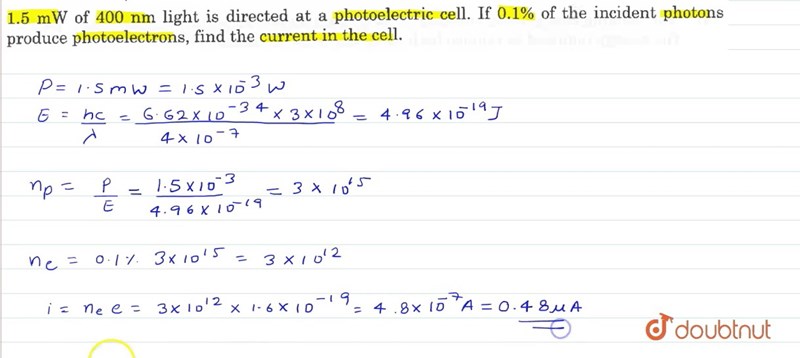 1.5 mW of 400 nm light is directed at a photoelectric cell. If 0.1% of the incident photons
produce photoelectrons, find the current in the cell.
P = 1.5 mW = 1.5 × 10⁻³ W
E = hc/λ = 6.62 × 10⁻³⁴ × 3 × 10⁸ / 4 × 10⁻⁷ = 4.96 × 10⁻¹⁹ J
np = P/E = 1.5 × 10⁻³ / 4.96 × 10⁻¹⁹ = 3 × 10¹⁵
ne = 0.1 % 3 × 10¹⁵ = 3 × 10¹²
i = ne e = 3 × 10¹² × 1.6 × 10⁻¹⁹ = 4.8 × 10⁻⁷ A = 0.48 μA
doubtnut